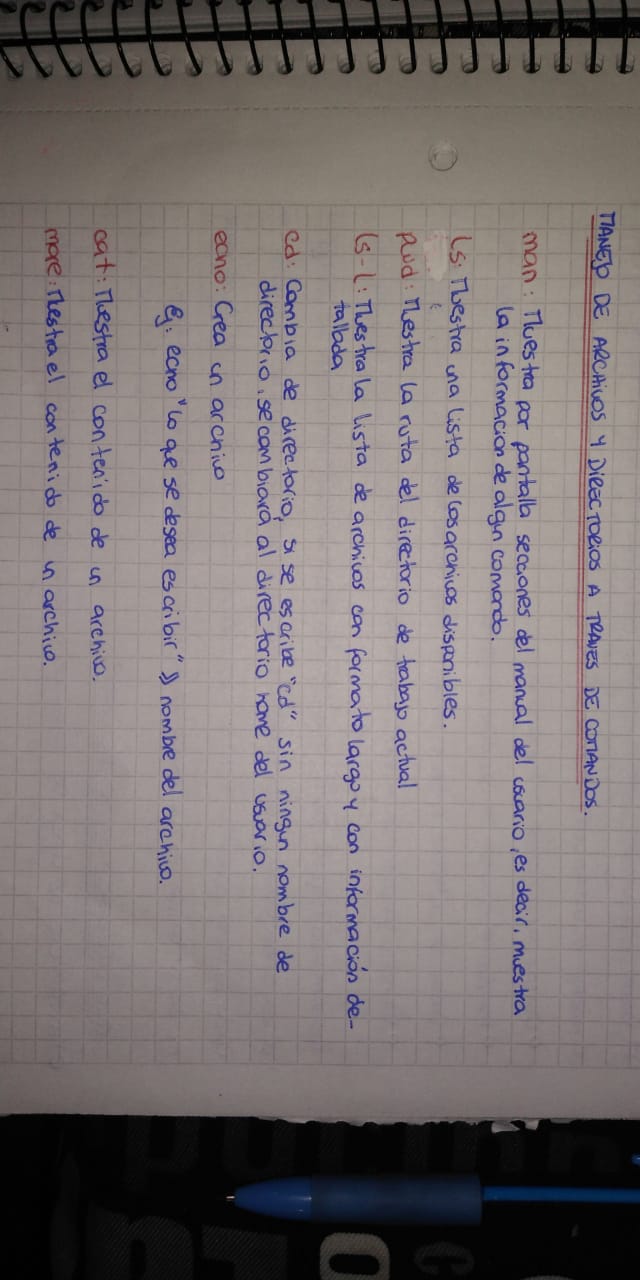 MANEJO DE ARCHIVOS Y DIRECTORIOS A TRAVES DE COMANDOS.
man: Muestra por pantalla secciones del manual del usuario, es decir, muestra
la informacion de algun comando.
ls: Muestra una lista de los archivos disponibles.
pwd: Muestra la ruta del directorio de trabajo actual
ls-l: Muestra la lista de archivos con formato largo y con información de-
tallada
cd: Cambia de directorio, si se escribe "cd" sin ningun nombre de
directorio, se cambiará al directorio home del usuario.
echo: Crea un archivo
Ej: echo "lo que se desea escribir" >> nombre del archivo.
cat: Muestra el contenido de un archivo.
more: Mestra el contenido de un archivo.